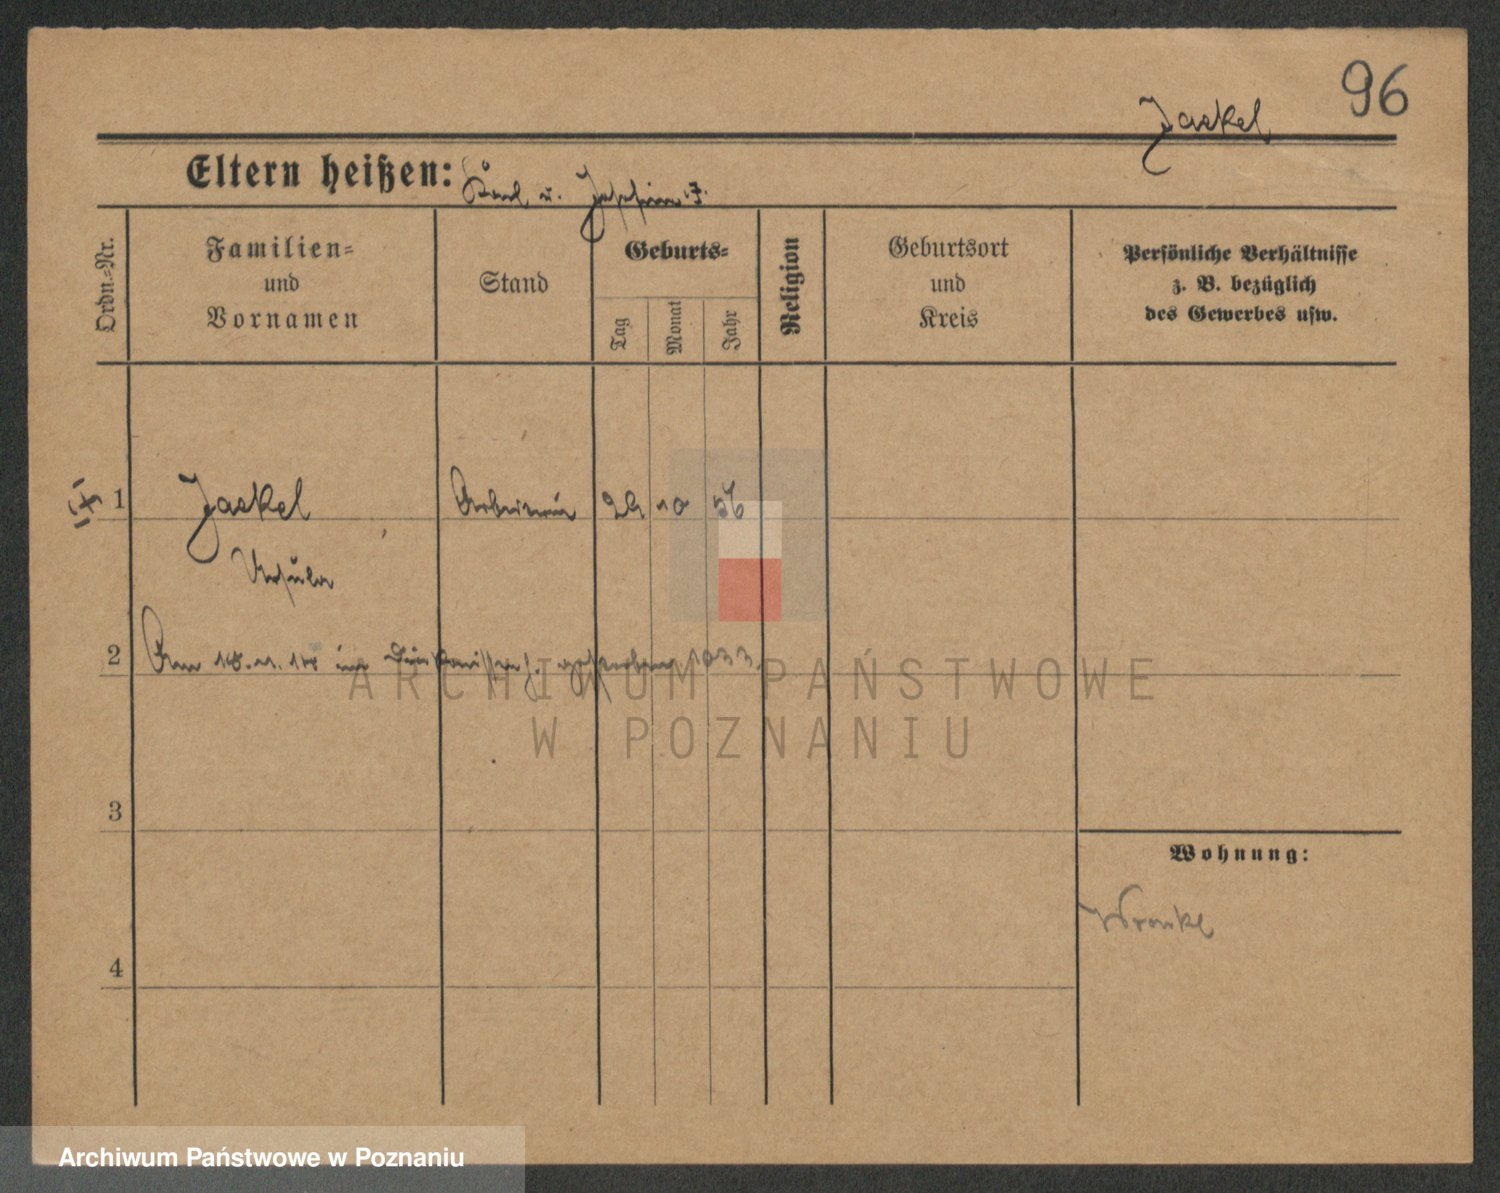 96
Jaekel
Eltern heißen: Karl u.
Ordn.-Nr.
Familien-
und
Vornamen
Stand
Geburts-
Tag
Monat
Jahr
Religion
Geburtsort
und
Kreis
Persönliche Verhältnisse
z. B. bezüglich
des Gewerbes usw.
1 Jaekel Arbeiterin 29 10 56
Ursula
2 Am 18. 11. in gestorben 1933.
ARCHIWUM PAŃSTWOWE
W POZNANIU
3
Wohnung:
Wronke
4
Archiwum Państwowe w Poznaniu